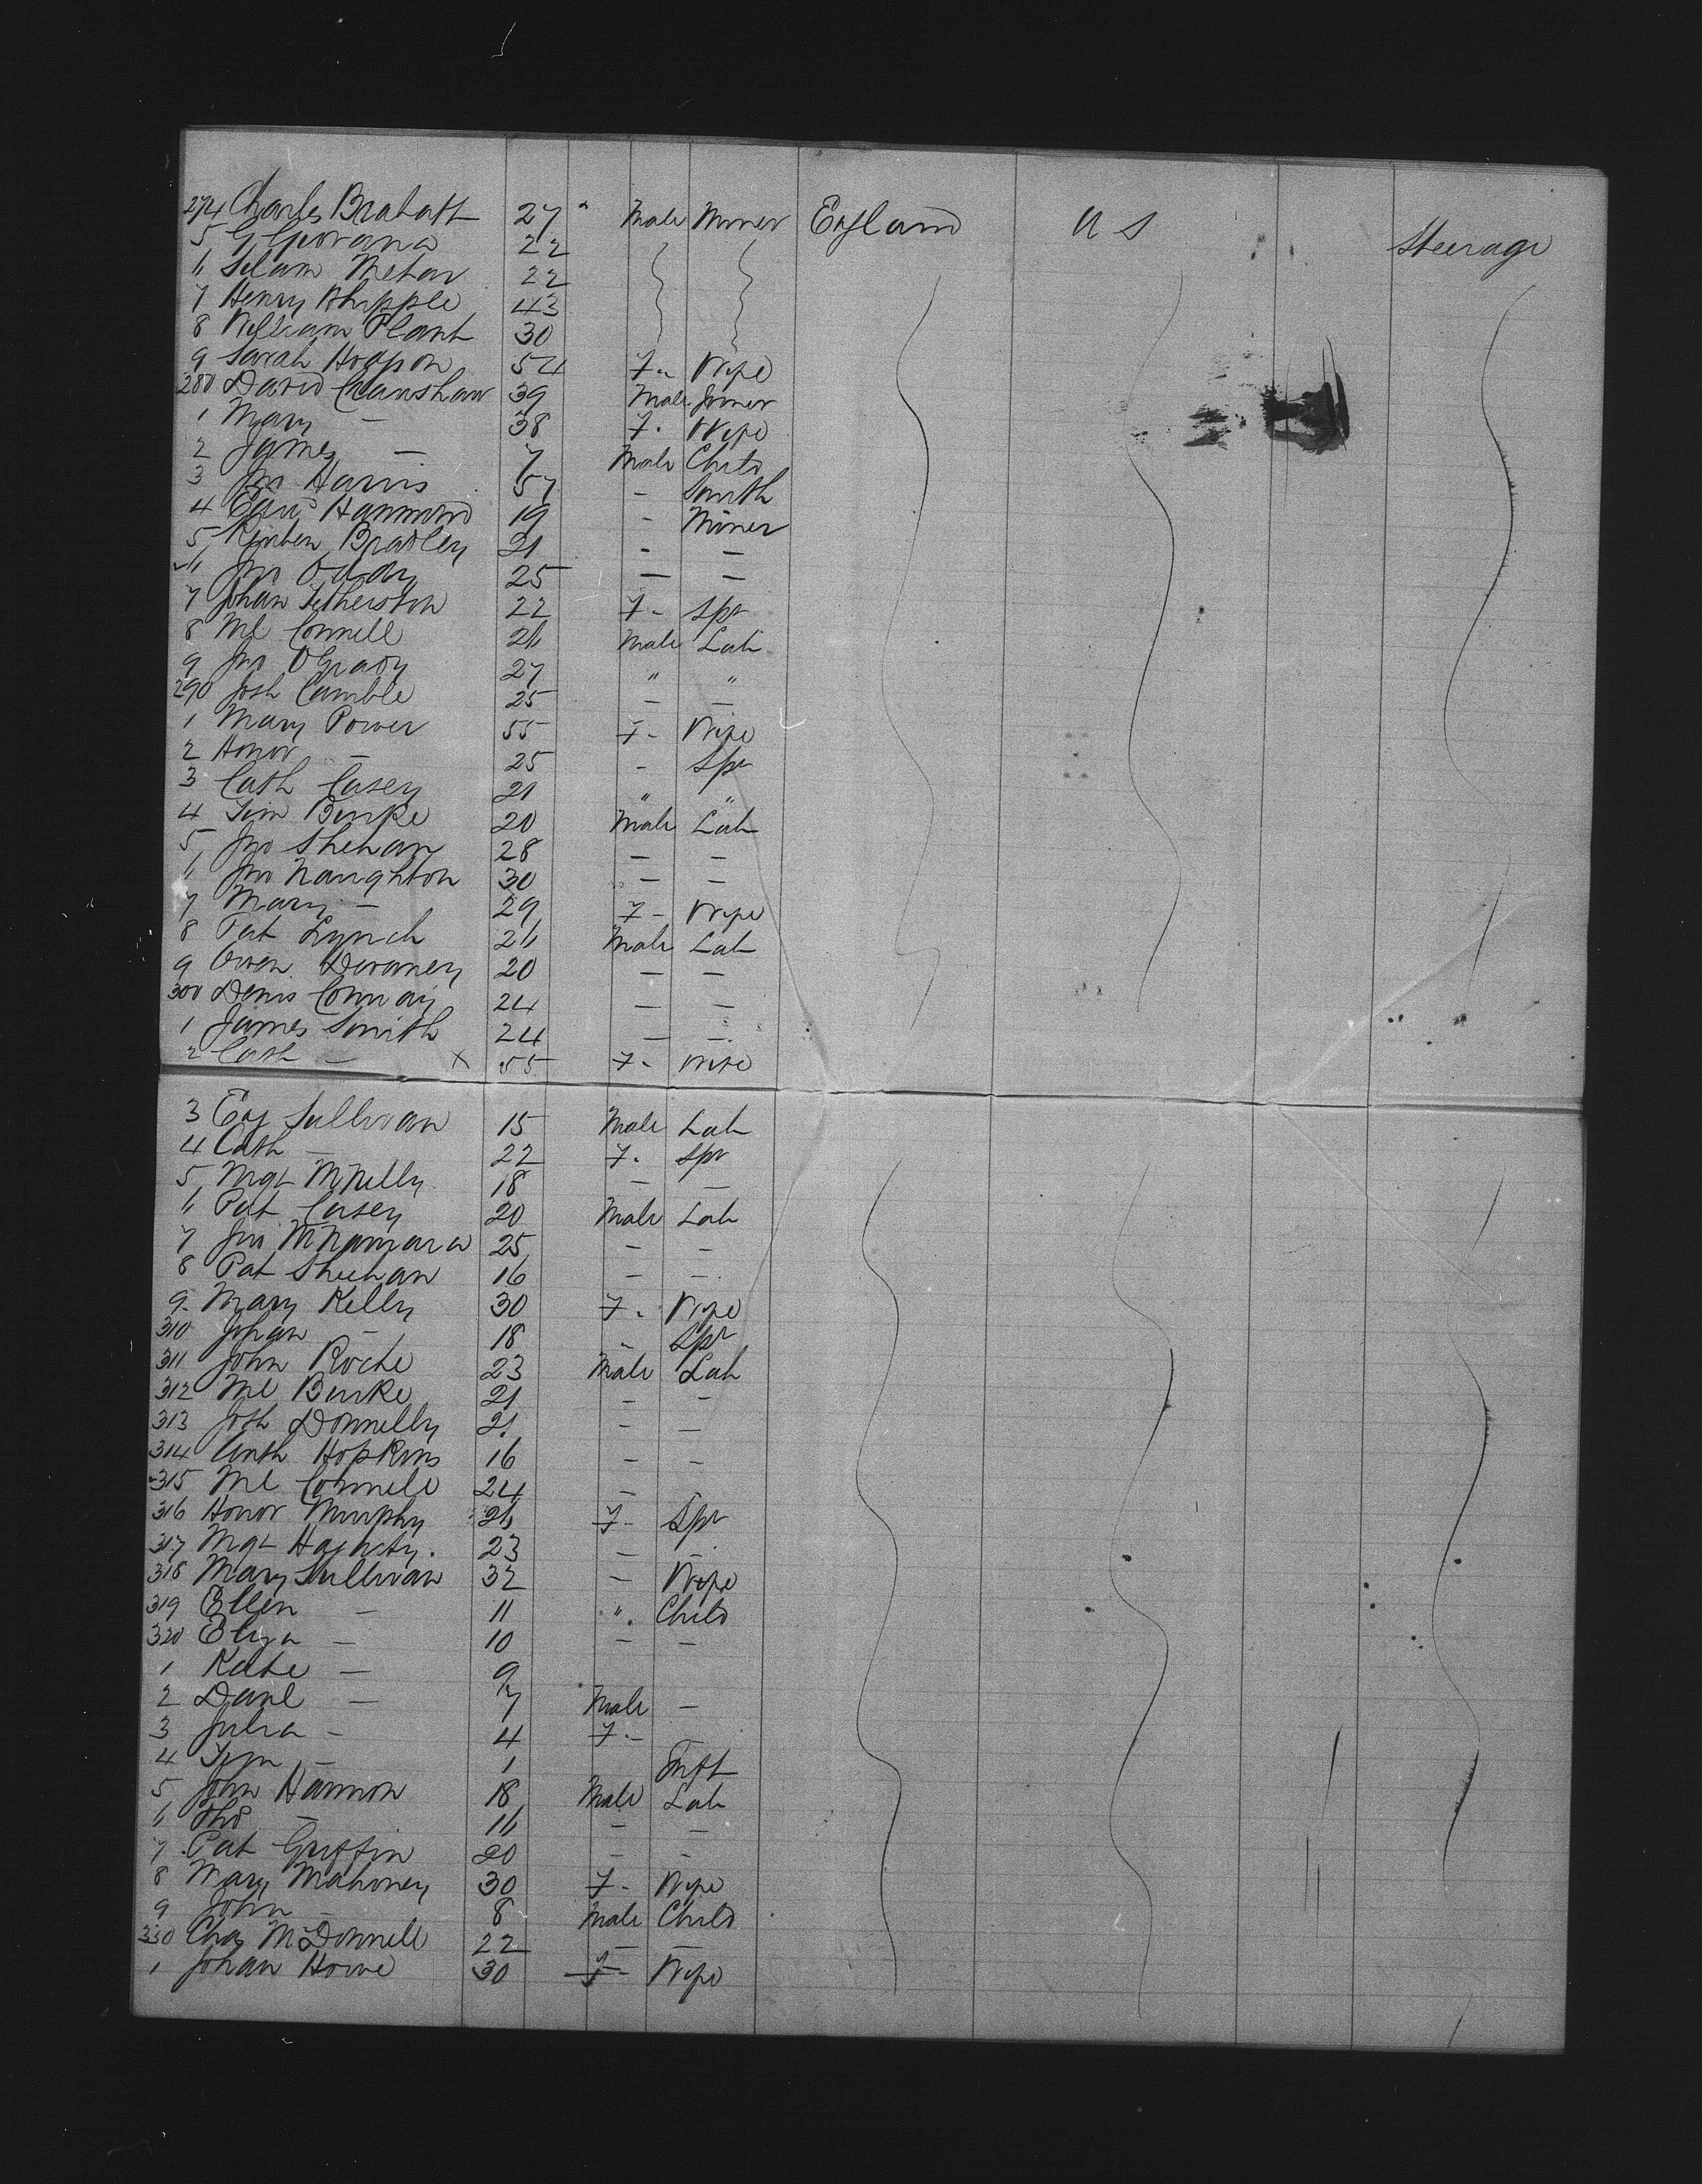 274 Charles Brabatt 27 " Male Miner England U S Steerage
5 G Giovana 22
6 Silam Metar 22
7 Henry Whipple 43
8 William Plant 30
9 Sarah Hodgson 54 F- Wife
280 David Cranshaw 39 Male Joiner
1 Mary — 38 F- Wife
2 James — 7 Male Child
3 Jno Harris 57 - Smith
4 Hammond 19 - Miner
5 Reuben Bradley 21 - —
6 Jno 25 — —
7 Johan Fetherston 22 F- Spr
8 Ml Connell 26 Male Lab
9 Jno OGrady 27 " "
290 Josh Camble 25 — —
1 Mary Power 55 F- Wife
2 Honor — 25 - Spr
3 Cath Casey 21 " "
4 Tim Burke 20 Male Lab
5 Jno Shehan 28 — —
6 Jno Naughton 30 — —
7 Mary — 29 F- Wife
8 Pat Lynch 26 Male Lab
9 Owen Devaney 20 — —
300 Denis Conway 24 — —
1 James Smith 24 — —
2 Cath — x 55 F- Wife
3 Sullivan 15 Male Lab
4 Cath — 22 F- Spr
5 Mgt McNelly 18 — —
6 Pat Casey 20 Male Lab
7 Jno McNamara 25 — —
8 Pat Sheehan 16 — —
9 Mary Kelly 30 F- Wife
310 Johan — 18 " Spr
311 John Roche 23 Male Lab
312 Ml Burke 21 - -
313 Josh Donnelly 21 - —
314 Anth Hopkins 16 - -
315 Ml Connell 24 — -
316 Honor Murphy 26 F- Spr
317 Mgt Hagherty. 23 — -
318 Mary Sullivan 32 — Wife
319 Ellen — 11 " Child
320 Eliza — 10 — —
1 Kate — 9
2 Danl — 7 Male —
3 Julia - 4 F- —
4 Tim — 1 Inft
5 John Hannon 18 Male Lab
6 Tho — 16 - -
7 Pat Griffin 20 - -
8 Mary Mahoney 30 F- Wife
9 John — 8 Male Child
330 Chas McDonnell 22 — —
1 Johan Howe 30 F- Wife